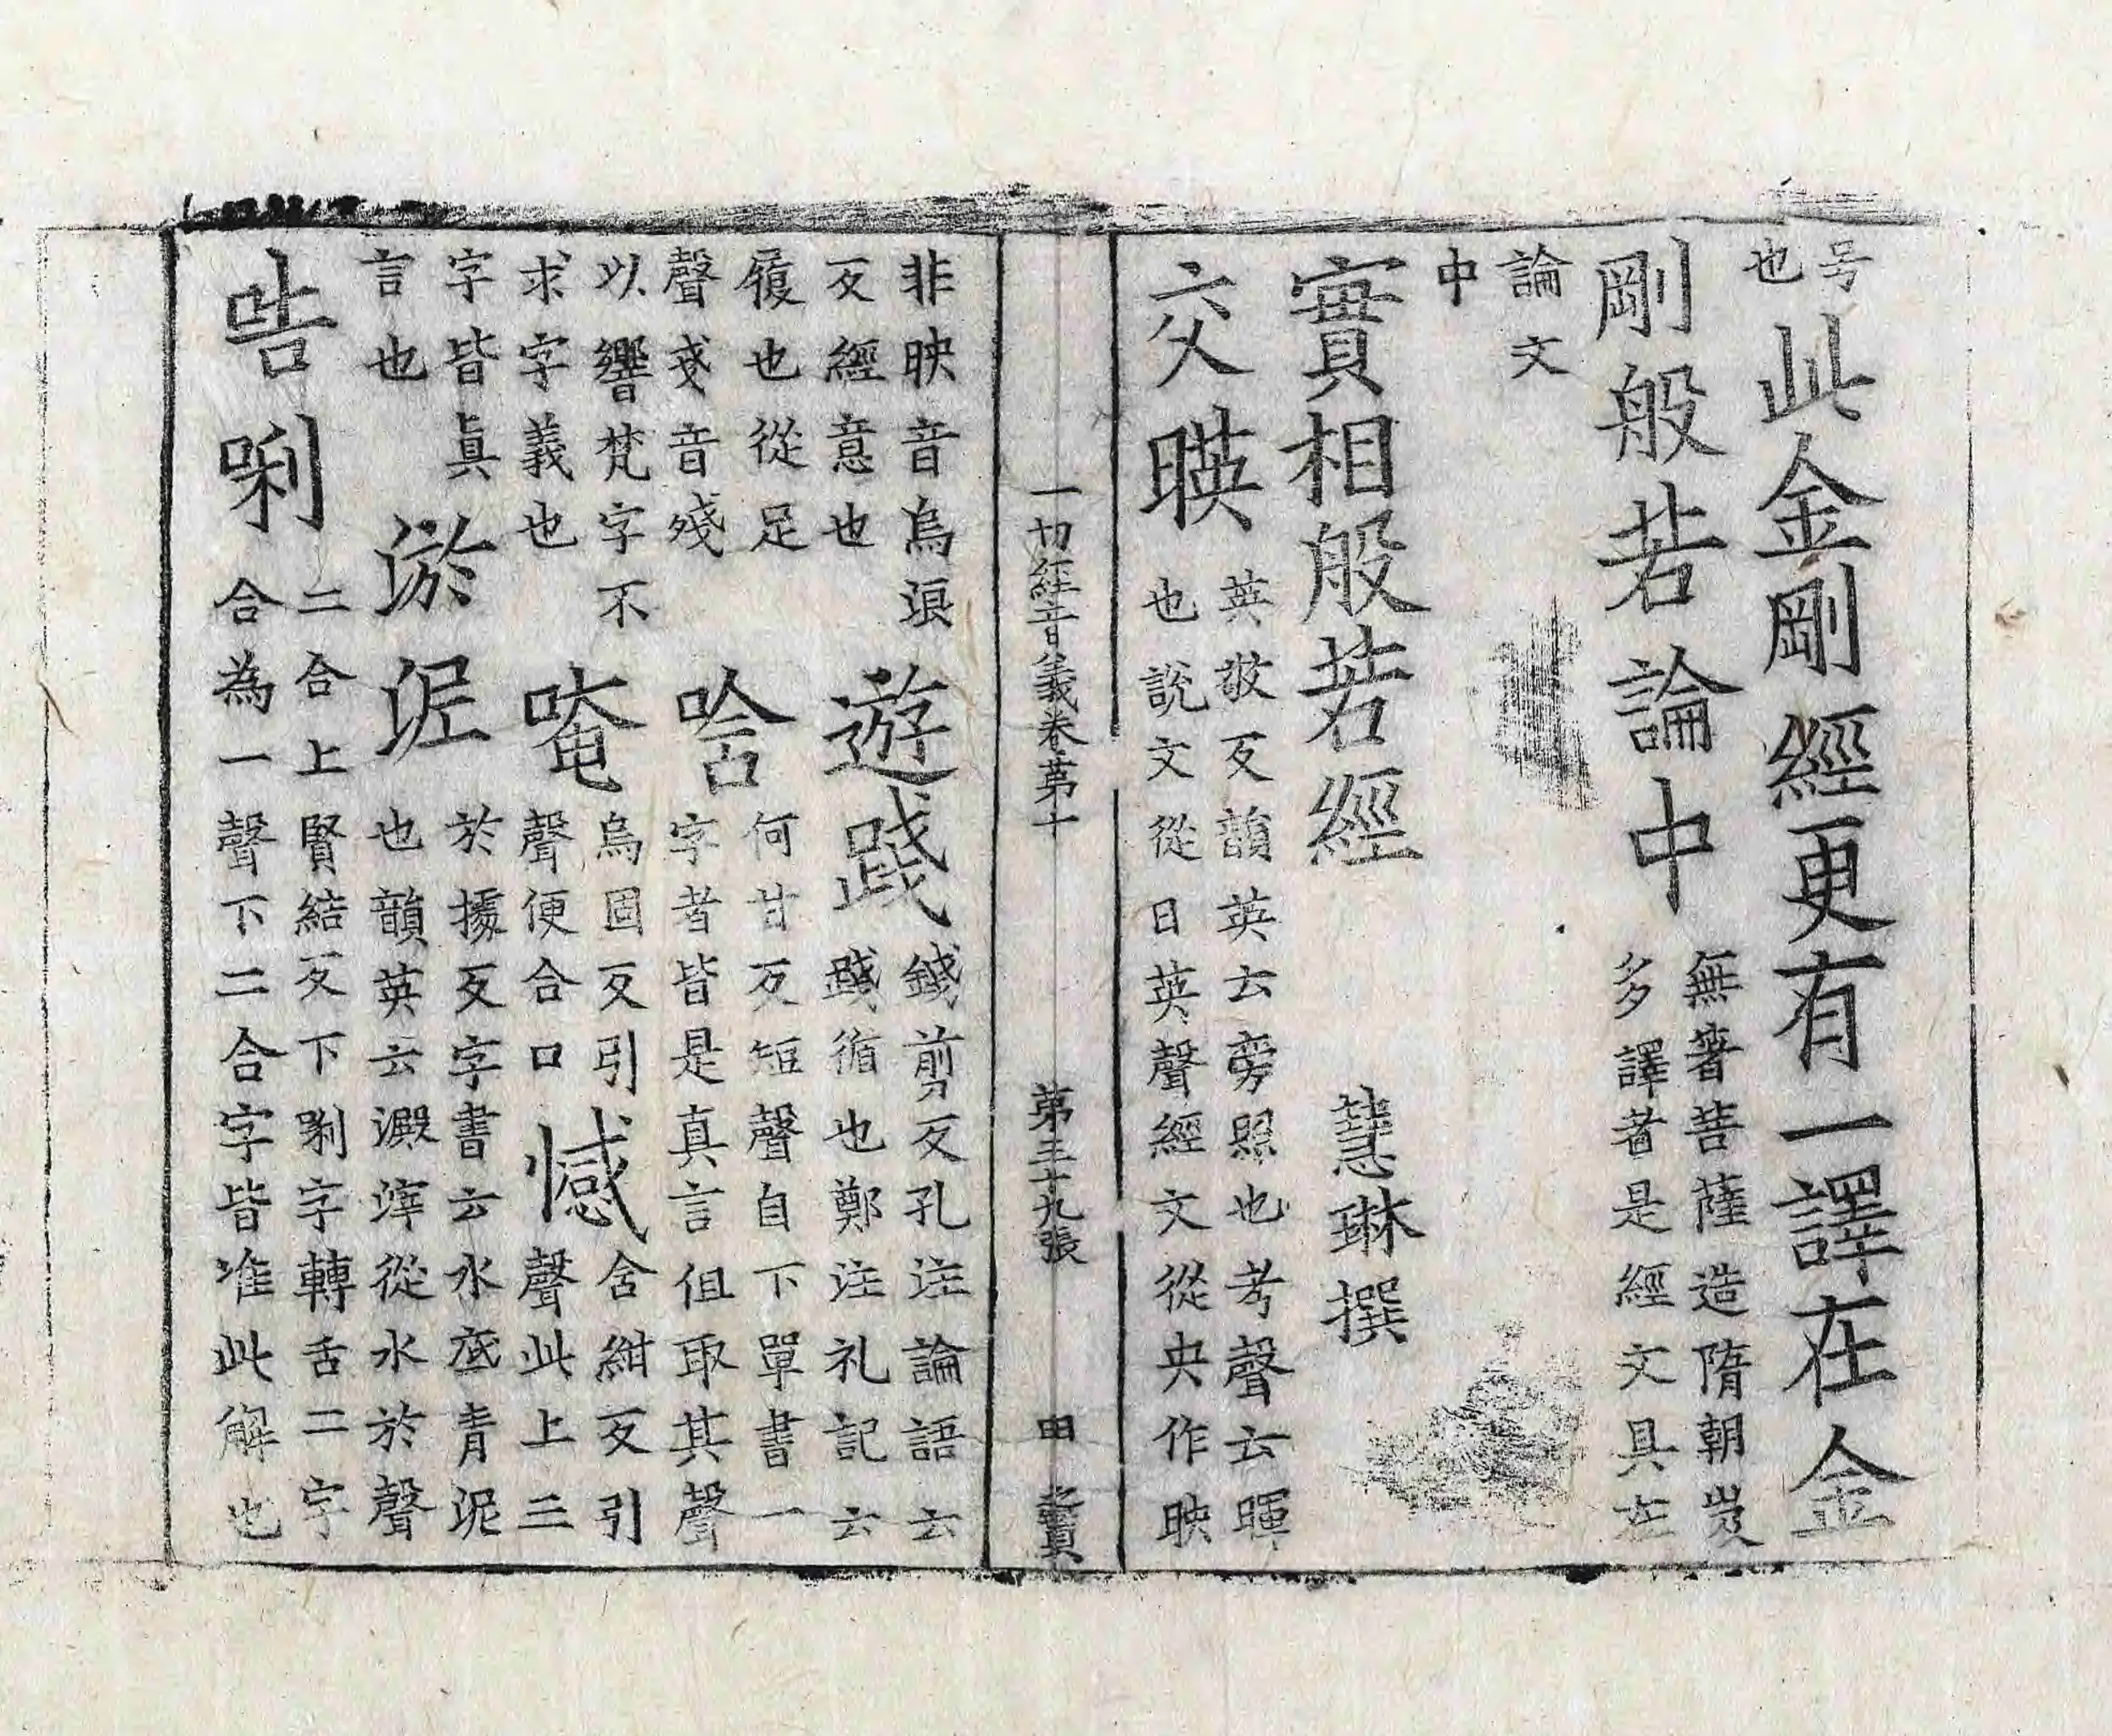 号
也
此金剛經更有一譯在金
剛般若論中
無著菩薩造隋朝岌
多譯者是經文具在
論文
中
實相般若經 慧琳撰
交暎
英敬反韻英云旁照也考聲云暉
也說文從日英聲經文從央作映
一切經音義卷第十 第三十九張 田
非映音烏浪
反經意也
遊踐
錢剪反孔注論語云
踐循也鄭注礼記云
履也從足
聲戔音殘
唅
何甘反短聲自下單書一
字者皆是真言伹取其聲
以響梵字不
求字義也
唵
烏固反引
聲便合口
憾
含紺反引
聲此上三
字皆真
言也
淤泥
於據反字書云水底青泥
也韻英云澱滓從水於聲
㗖唎
二合上賢結反下唎字轉舌二字
合為一聲下二合字皆准此解也